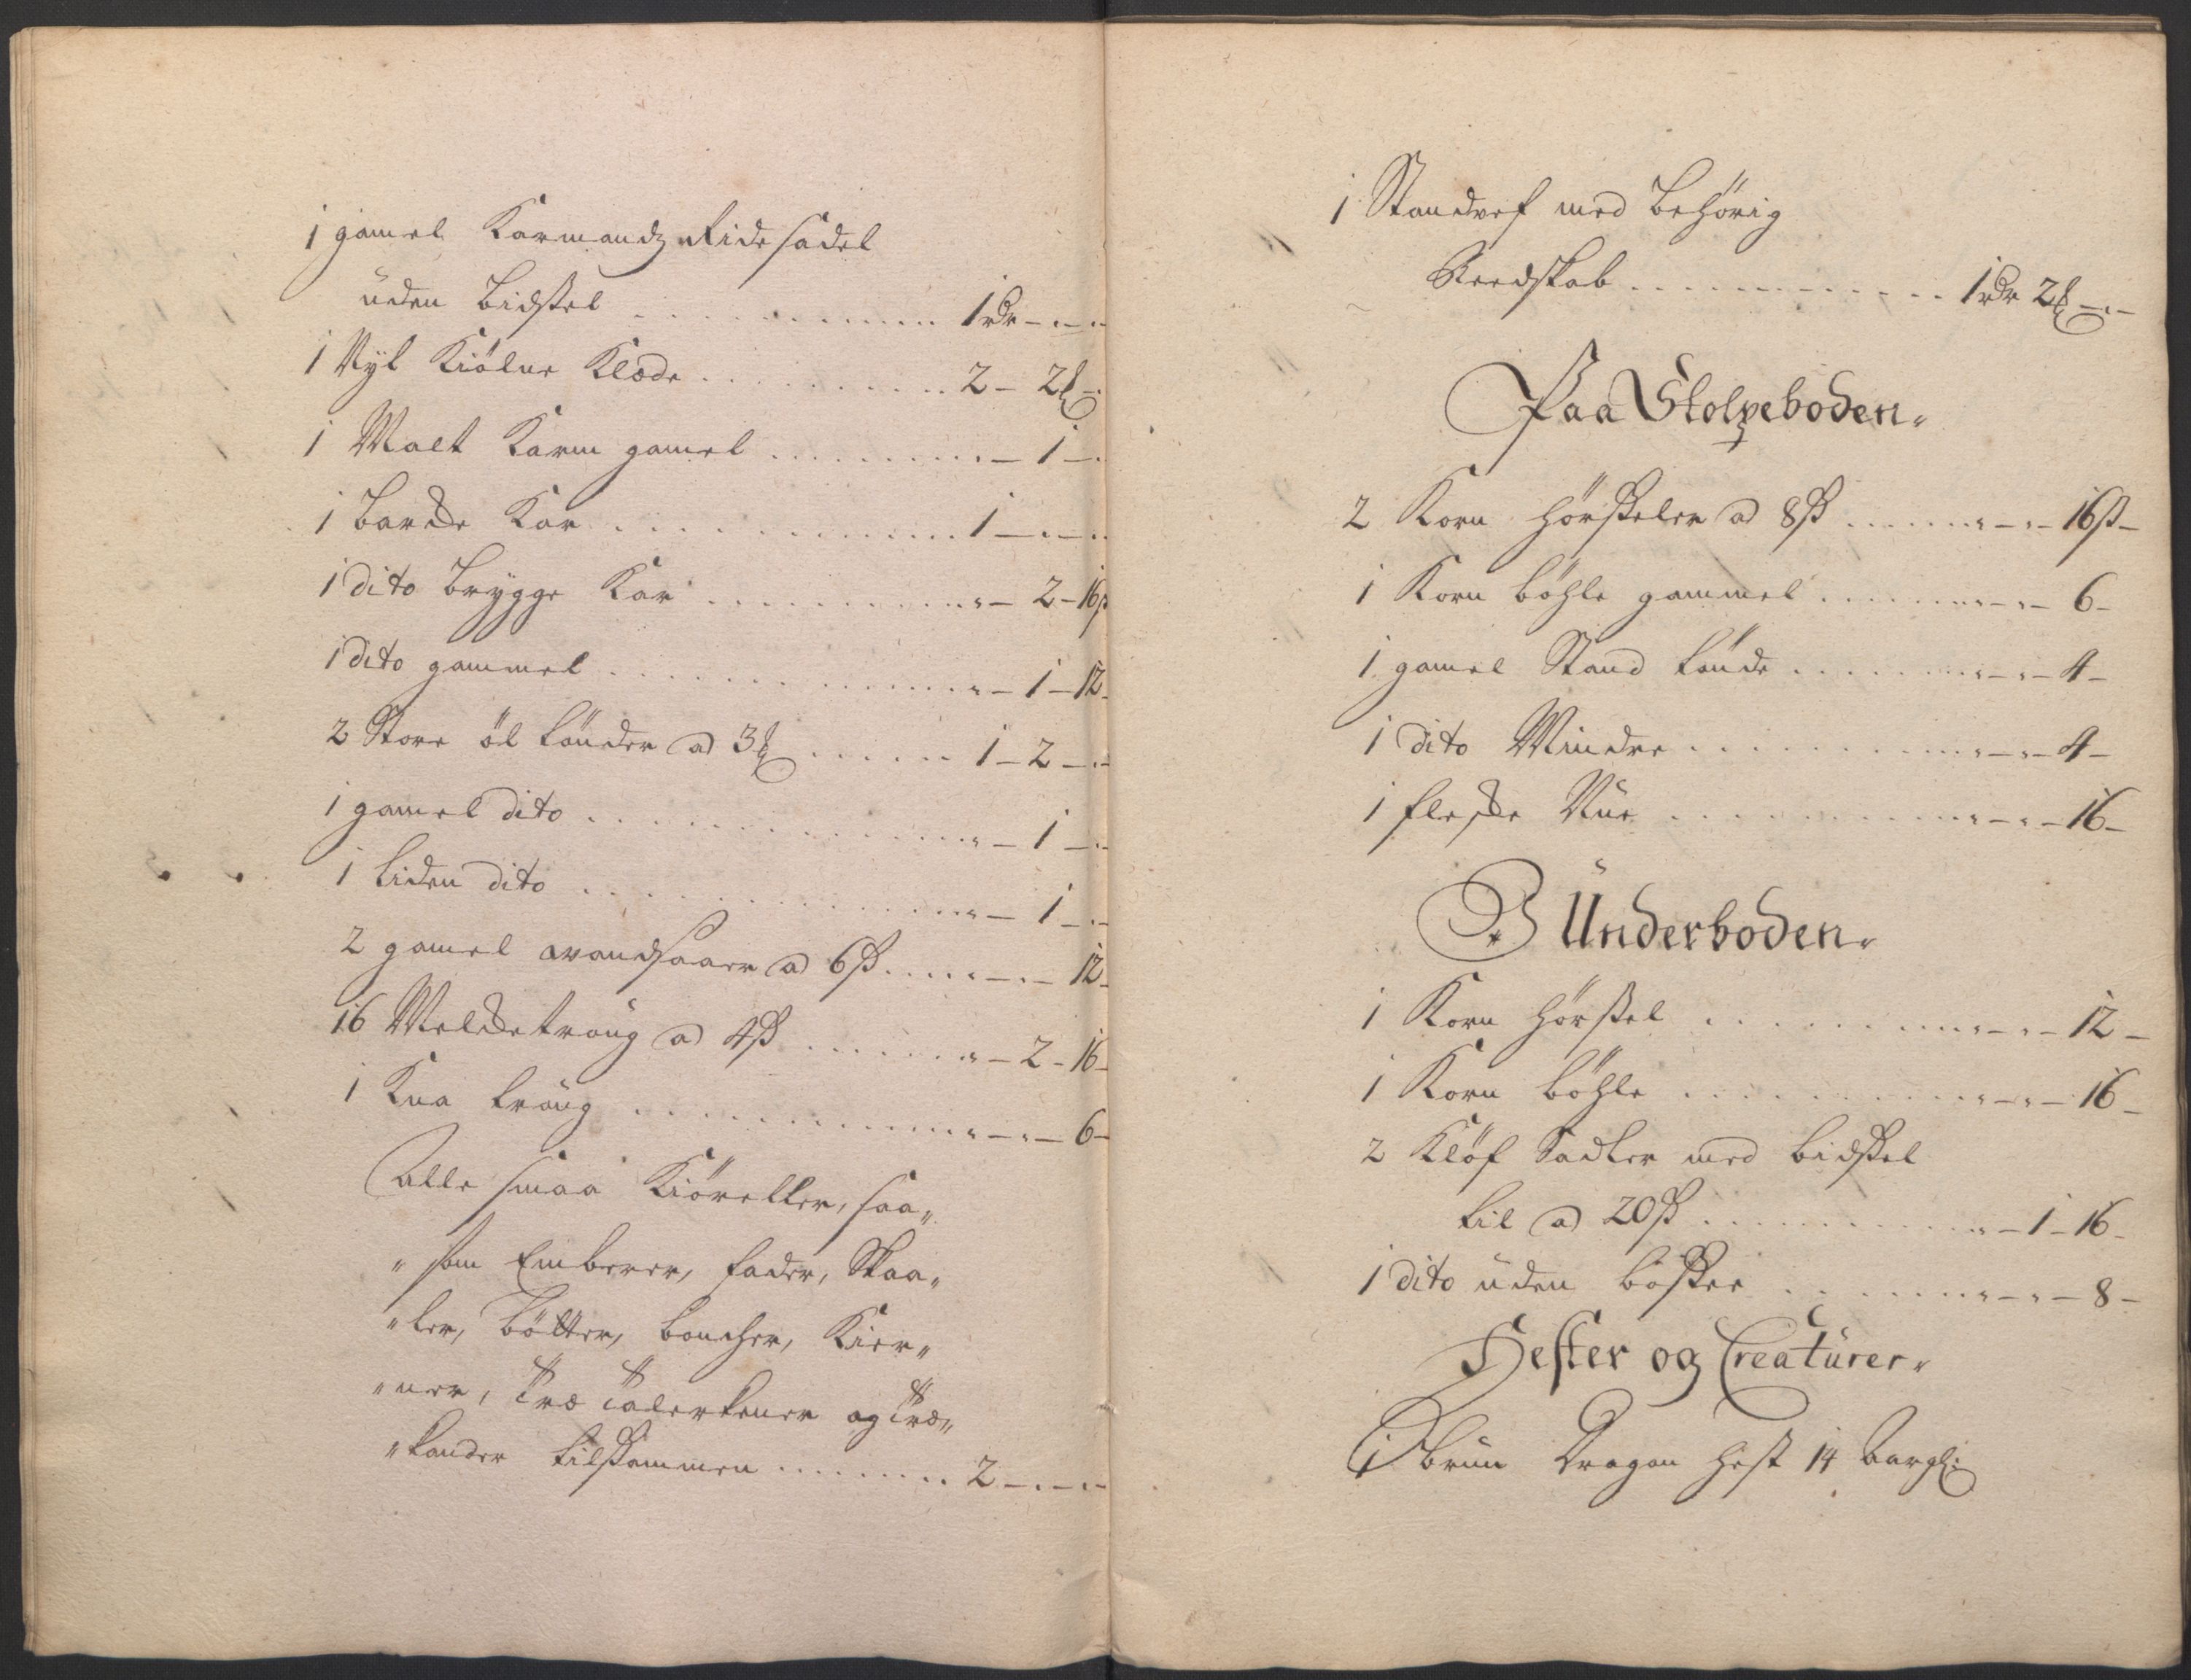 1 gamel Karmandz Ride sadel
uden Bidsel . . . . . . . . . . . 1 rdr - " - "
1 Nyt Kiölne Klæde . . . . . . . . . 2 - 2 -
1 Malt Karm gamel . . . . . . . . . " - 1 -
1 Barcke Kar . . . . . . . . . . . 1 - " - "
1 dito Brygge Kar . . . . . . . . . " - 2 - 16 ß
1 dito gammel . . . . . . . . . . . " - 1 - 12 -
2 Store öl tönder a 3 . . . . . . 1 - 2 - "
1 gamel dito . . . . . . . . . . . . " - 1 - "
1 liden dito . . . . . . . . . . . . " - 1 - "
2 gamel vandsaaer a 6 ß . . . . . " - " - 12 -
16 Melcketroug a 4 ß . . . . . . " - 2 - 16 -
1 Kna troug . . . . . . . . . . . . " - " - 6 -
Alle smaa Kiöreller, saa "
" som Emberer, fader, Skaa "
" ler, Bötter, boucher, Kier "
" ner, Træ talerkener og Træ "
" kander tilsammen . . . . . . . . 2 - " - "
1 Standvef med Behörig
Reedskab . . . . . . . . . . . . 1 rdr 2 - " -
Paa Stolpeboden "
2 Korn hörskeler a 8 ß . . . . . . " - " - 16 ß -
1 Korn böhle gammel . . . . . . . " - " - 6 -
1 gamel Stand tönde . . . . . . . " - " - 4 -
1 dito Mindre . . . . . . . . . . . " - " - 4 -
1 fleske . . . . . . . . . . . " - " - 16 -
J Underboden "
1 Korn hörskel . . . . . . . . . . " - " - 12 -
1 Korn böhle . . . . . . . . . . . " - " - 16 -
2 Klöf Sadler med bidsel
til a 20 ß . . . . . . . . . . . " - 1 - 16 -
1 dito uden . . . . . . . . . " - " - 8 -
Hester og Creaturer "
1 brun Dragon hest 14 Aargl: